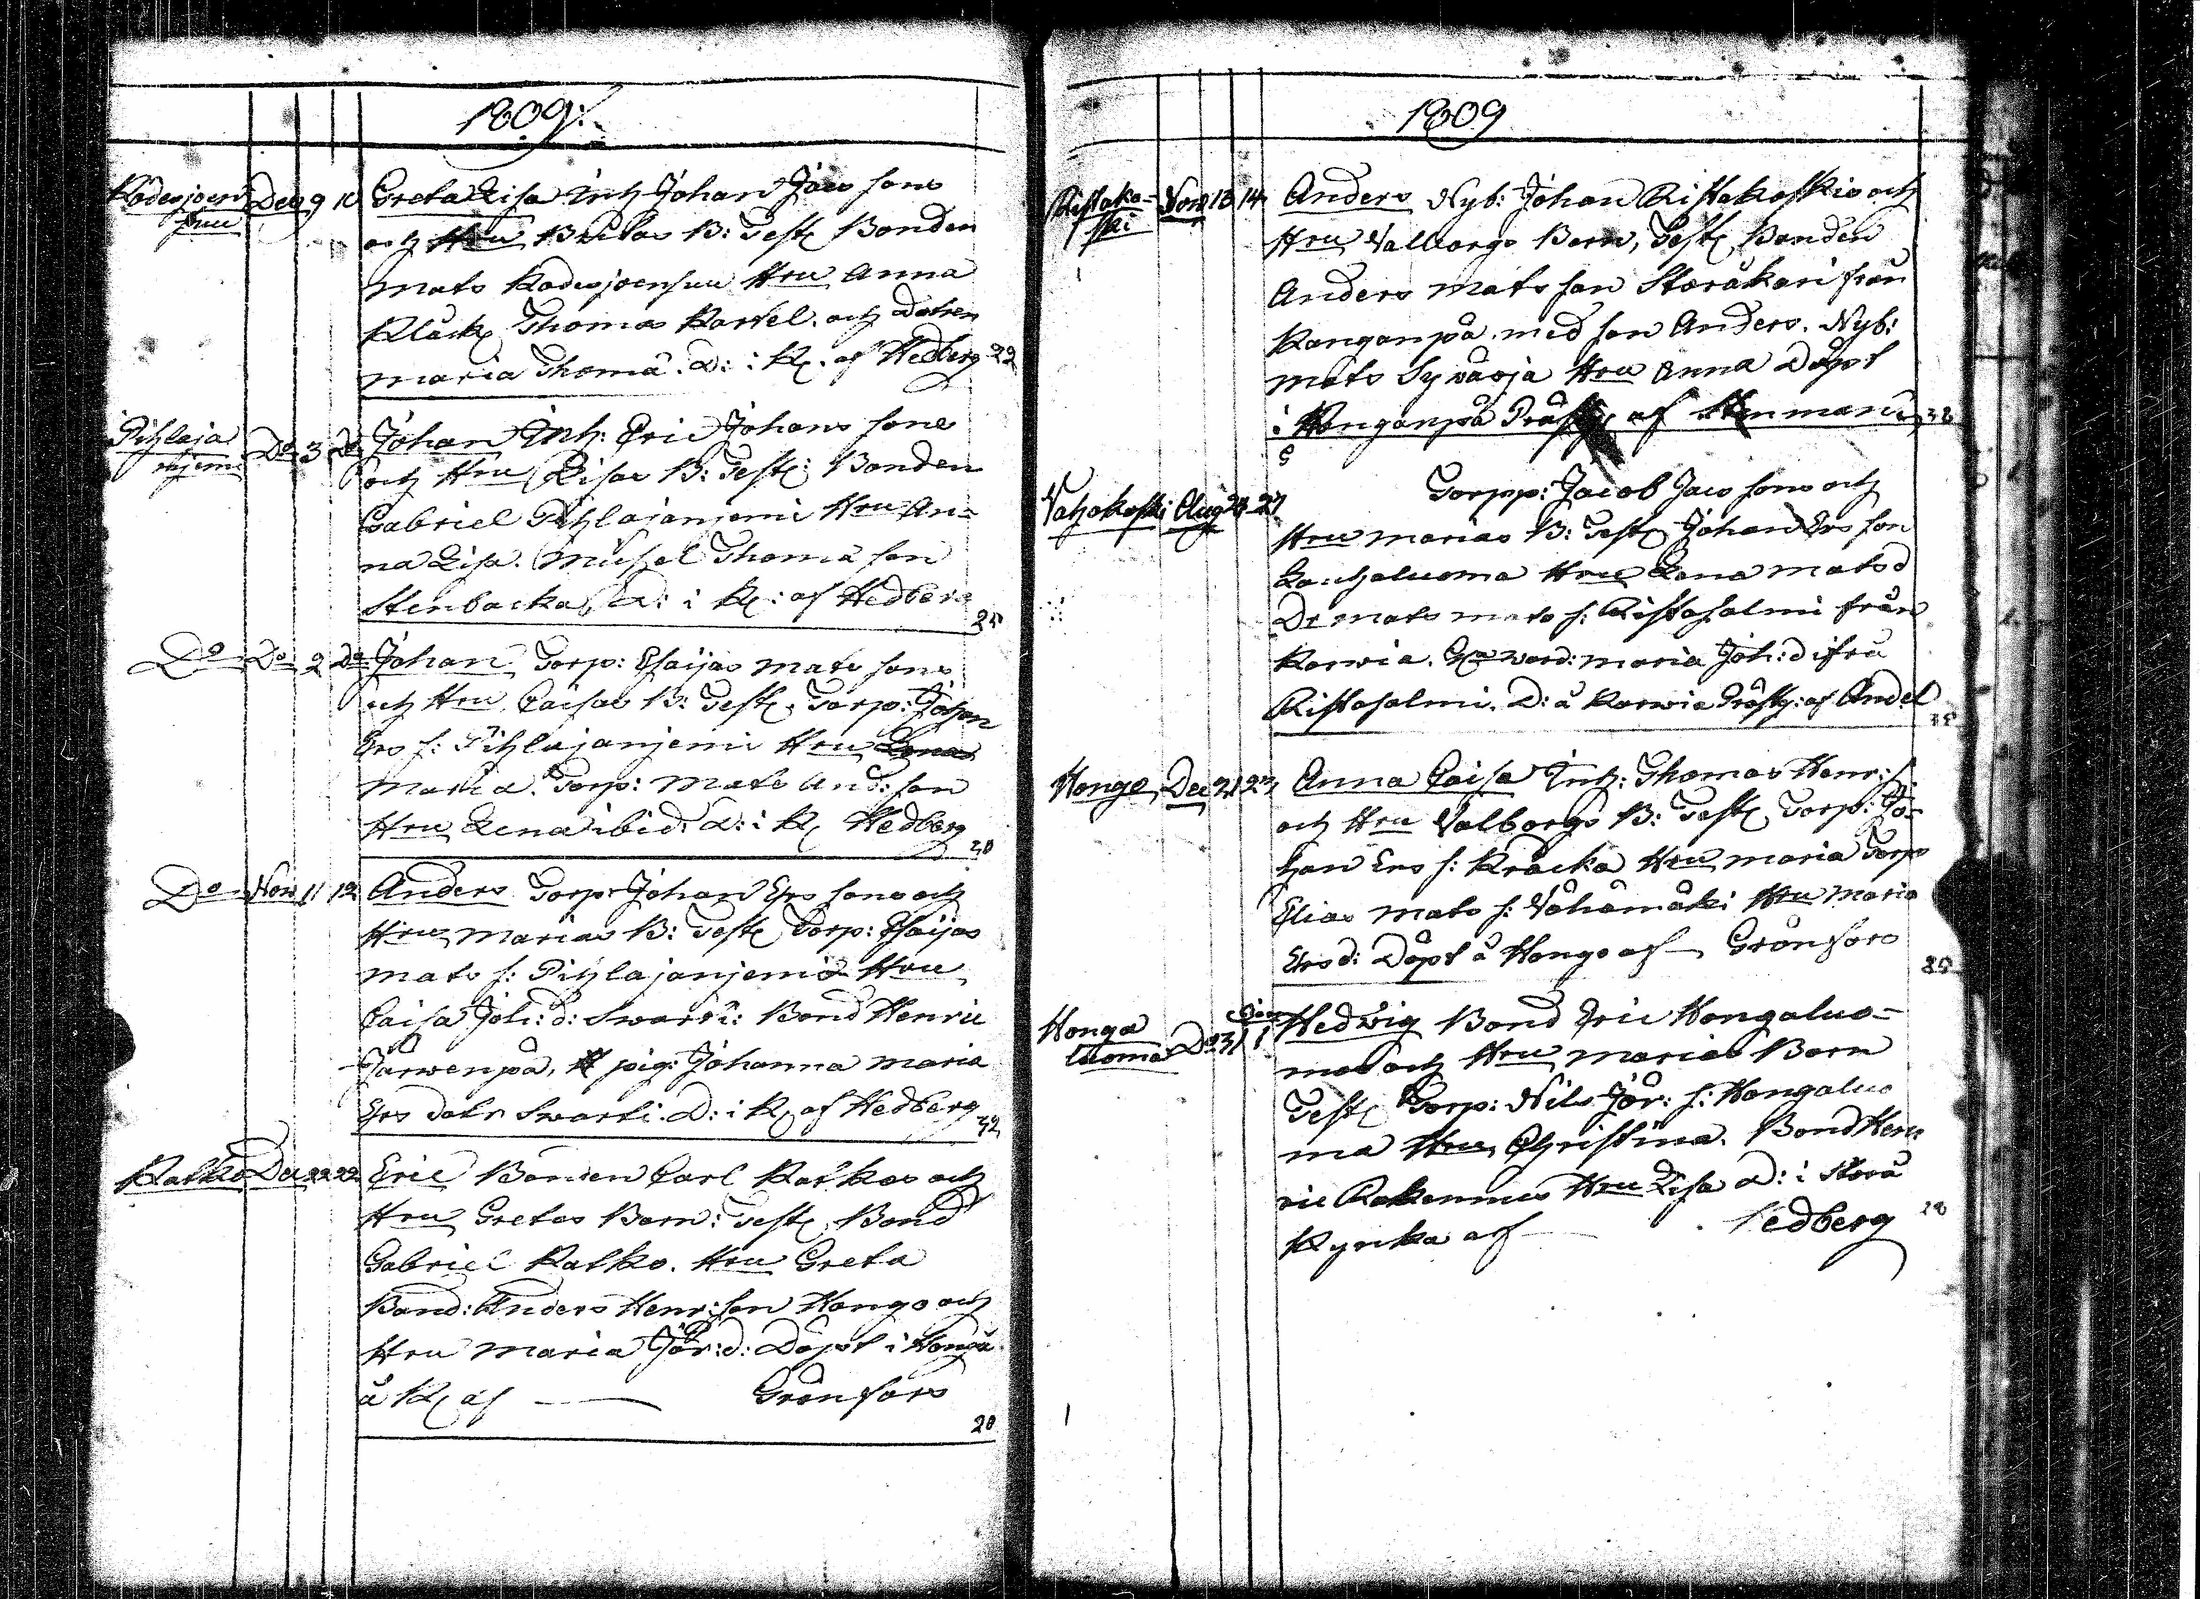 1809.
Kodesjoen Dec 9 10 Greta Lisa Inh Johan Jacs sons
suu och Hru Britas B: Test Bonden
Mats Kodesjoensuu Hru Anna
Klåck Thomas Kortel. och Dotren
Maria Thomæ. D: i K. af Hedberg 22
Pihlaja Do 3 Do Johan Inh: Eric Johans sons
njemi och Hru Lisas B: Test: Bonden
Gabriel Pihlajanjemi Hru An=
na Lisa. Michel Thomæ son
Stenbacka, D: i K: af Hedberg
25
Do Do 2 Do Johan Torp: Esaijas Mats sons
och Hru Caisas B: Test. Torp: Johan
Ers s: Pihlajanjemi Hru
Maria. Torp: Mats And: son
Hru Lena ibid: D: i K Hedberg
20
Do Nov 11 12 Anders Torp: Johan Ers sons och
Hru Marias B: Test Torp: Esaijas
Mats s: Pihlajanjemi Hru
Caisa Joh: d: Swarti: Bond Henric
Järwenpä, pig: Johanna Maria
Ers dotr Swarti. D: i K af Hedberg
32
Katko Dec 22 22 Eric Bonden Carl Katkos och
Hru Gretas Barn: Test Bond
Gabriel Katko. Hru Greta
Bond: Anders Henr: son Hongo och
Hru Maria Jör: d: Döpt i Honga
å K af — Grönfors
20
1809
Ristako- Nov 13 14 Anders Nyb: Johan Ristakoskis och
ski Hru Valborgs Barn, Test Bonden
Anders Mats son Storåkari från
Kanganpä med son Anders. Nyb:
Mats Syväoja Hru Anna Döpt
i Kanganpä Präst af Stenman 38
Vahokoski Aug 27 Torpp: Jacob Jacs sons och
Hru Marias B: Test Johan Ers son
Hru Lena Mats d
Dr Mats Mats s: Ristasalmi från
Karwia. Maria Joh: d ifrå
Ristasalmi. D: å Karwia Präst: af Andel
Hongo Dec 21 23 Anna Caisa Inh: Thomas Henr: s
och Hru Valborgs B: Test Torp: Jo-
han Ers s: Kråcka Hru Maria Torp
Elias Mats s: Vähämäki Hru Maria
Ers d: Döpt å Hongo af — Grönfors
25
Honga Do 31 1 Hedwig Bond Eric Hongaluo-
luoma mas och Hru Marias Barn
Test Torp: Nils Jör: s: Hongaluo
ma Hru Christina. Bond Hen
ric Rakennus Hru Lisa D: i Storå
Kyrka af — Hedberg